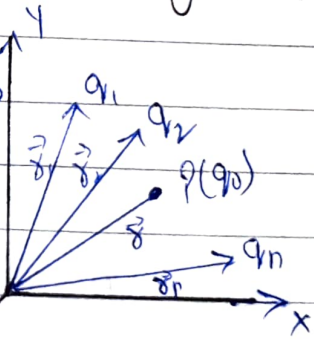 Y
q₁
q₂
r⃗₁
r⃗₂
P(q₀)
r⃗
qₙ
r⃗ₙ
X